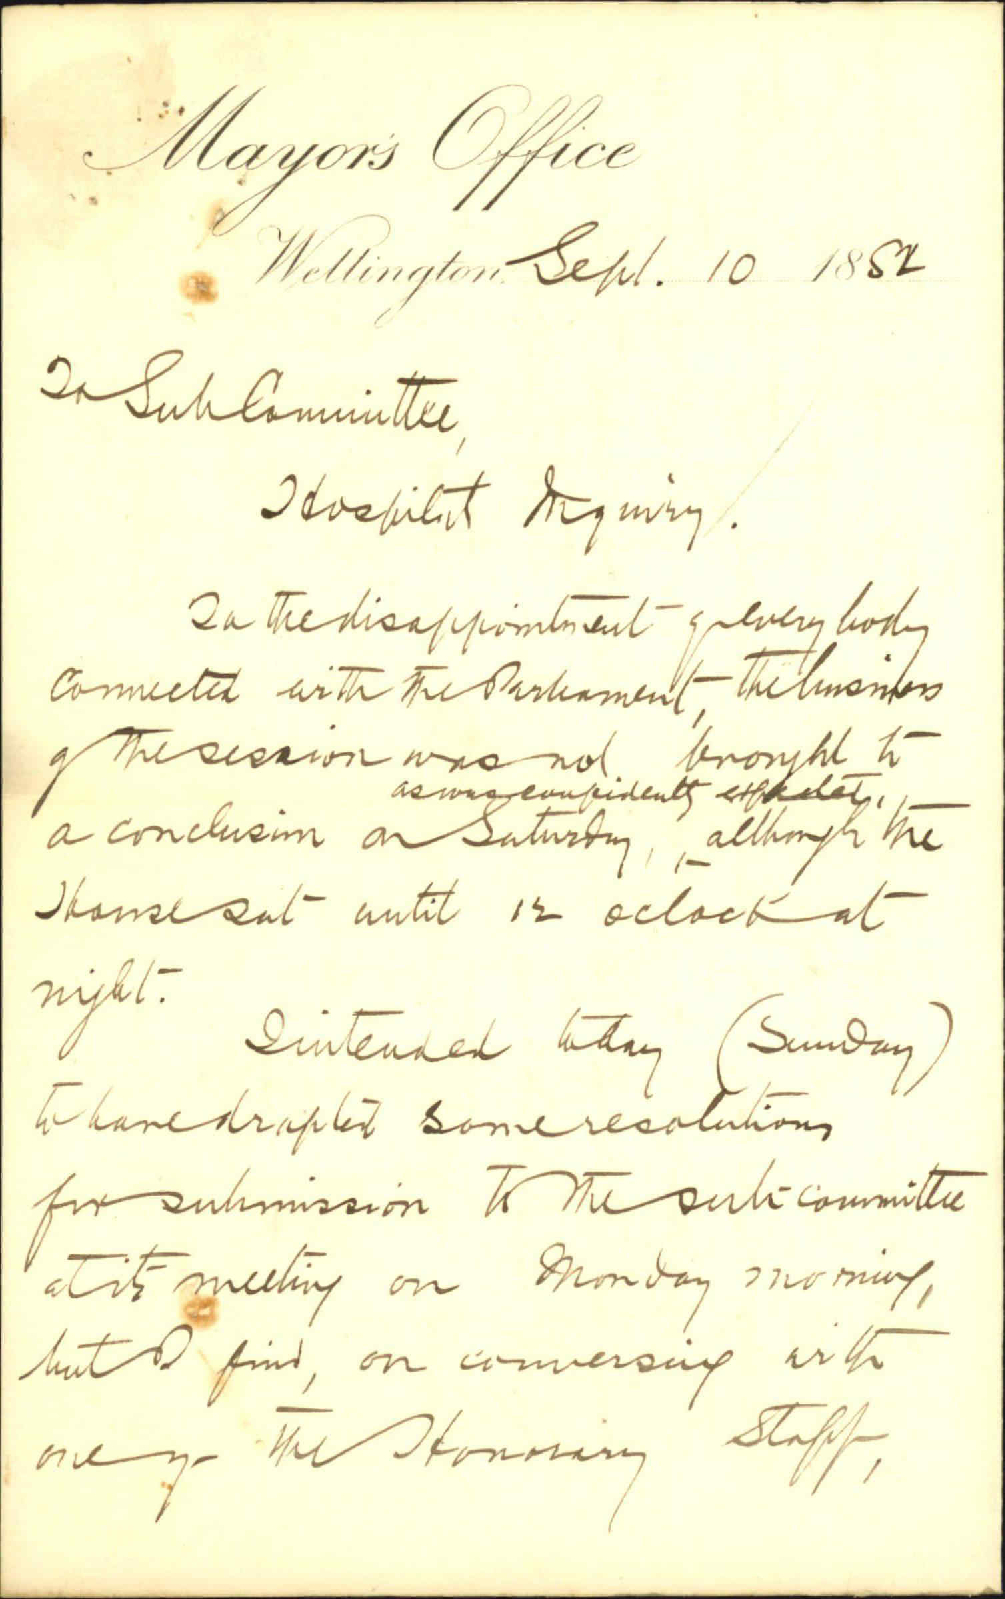 Mayor's Office
Wellington Sept. 10 1882
To Sub Committee,
Hospital Inquiry.
To the disappointment of every body
connected with the Parliament, the business
of the session was not brought to
as was confidently expected,
a conclusion on Saturday, although the
House sat until 12 oclock at
night.
I intended today (Sunday)
to have drafted some resolutions
for submission to the sub-committee
at its meeting on Monday morning,
but I find, on conversing with
one of the Honorary Staff,